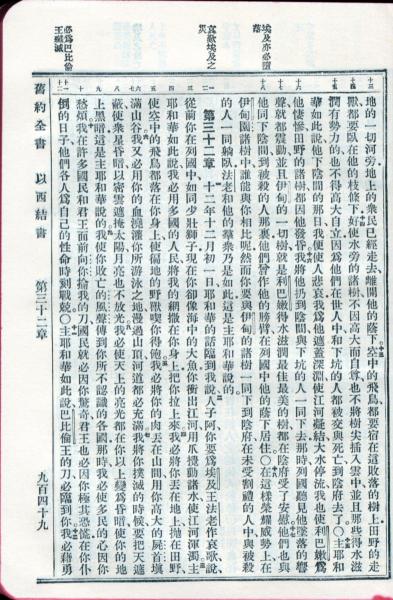 埃及亦必墮落
哀歌埃及之災
必爲巴比倫王殲滅
地的一切河旁地上的衆民已經走去離開他的蔭下空中的飛鳥都要宿在這敗落的樹上田野的走
獸都要臥在他的枝條下好使水旁的諸樹不因高大而自尊也不將樹尖插入雲中並且那些得水滋
潤有勢力的也不得高大自立因爲他們在世人中和下坑的人都被交與死亡到陰府去了○主耶和
華如此說他下陰間的那日我便使人悲哀我爲他遮蓋深淵使江河凝結大水停流我也使利巴嫩爲
他悽慘田野的諸樹都因他發昏我將他扔到陰間與下坑的人一同下去那時列國聽見他墜落的響
聲就都震動並且伊甸的一切樹就是利巴嫩得水滋潤最佳最美的樹都在陰府受了安慰他們也與
他同下陰間到被殺的人那裏他們曾作他的膀臂在列國中他的蔭下居住○在這樣榮耀威勢上在
伊甸園諸樹中誰能與你相比呢然而你要與伊甸的諸樹一同下到陰府在未受割禮的人中與被殺
的人一同躺臥法老和他的羣衆乃是如此這是主耶和華說的
第三十二章 十二年十二月初一日耶和華的話臨到我說人子阿你要爲埃及王法老作哀歌說
從前你在列國中如同少壯獅子現在你卻像海中的大魚你衝出江河用爪攪動諸水使江河渾濁主
耶和華如此說我必用多國的人民將我的網撒在你身上把你拉上來我必將你丟在地上抛在田野
使空中的飛鳥都落在你身上使徧地的野獸喫你得飽我必將你的肉丟在山間用你高大的屍首塡
滿山谷我又必用你的血澆灌你所游泳之地漫過山頂河道都必充滿我將你撲滅的時候要把天遮
蔽使衆星昏暗以密雲遮掩太陽月亮也不放光我必使天上的亮光都在你以上變爲昏暗使你的地
上黑暗這是主耶和華說的我使你敗亡的風聲傳到你所不認識的各國那時我必使多民的心因你
愁煩我在許多國民和君王面前向你掄我的刀國民就必因你驚奇君王也必因你極其恐慌在你仆
倒的日子他們各人爲自己的性命時刻戰兢○主耶和華如此說巴比倫王的刀必臨到你我必藉勇
舊約全書 以西結書 第三十二章 九百四十九